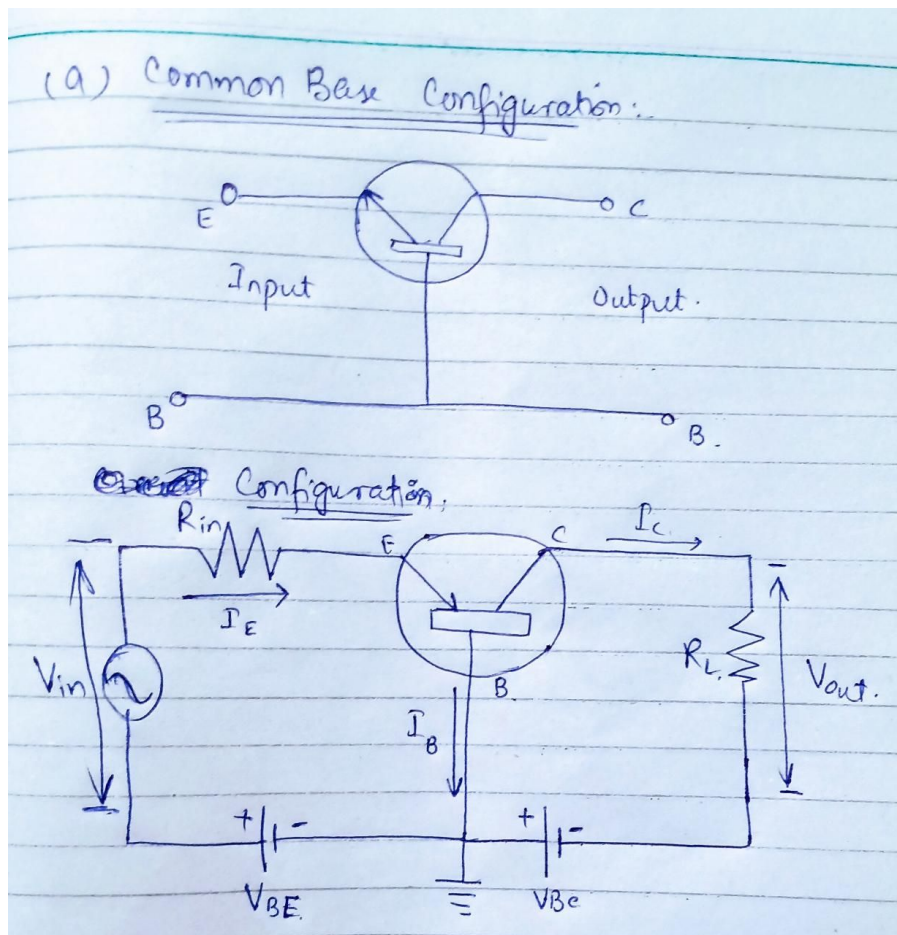 (a) Common Base Configuration:
E
C
Input
Output.
B
B.
Configuration,
Rin
E
C
Ic
IE
Vin
RL
Vout.
B
IB
+ -
+ -
VBE
VBC